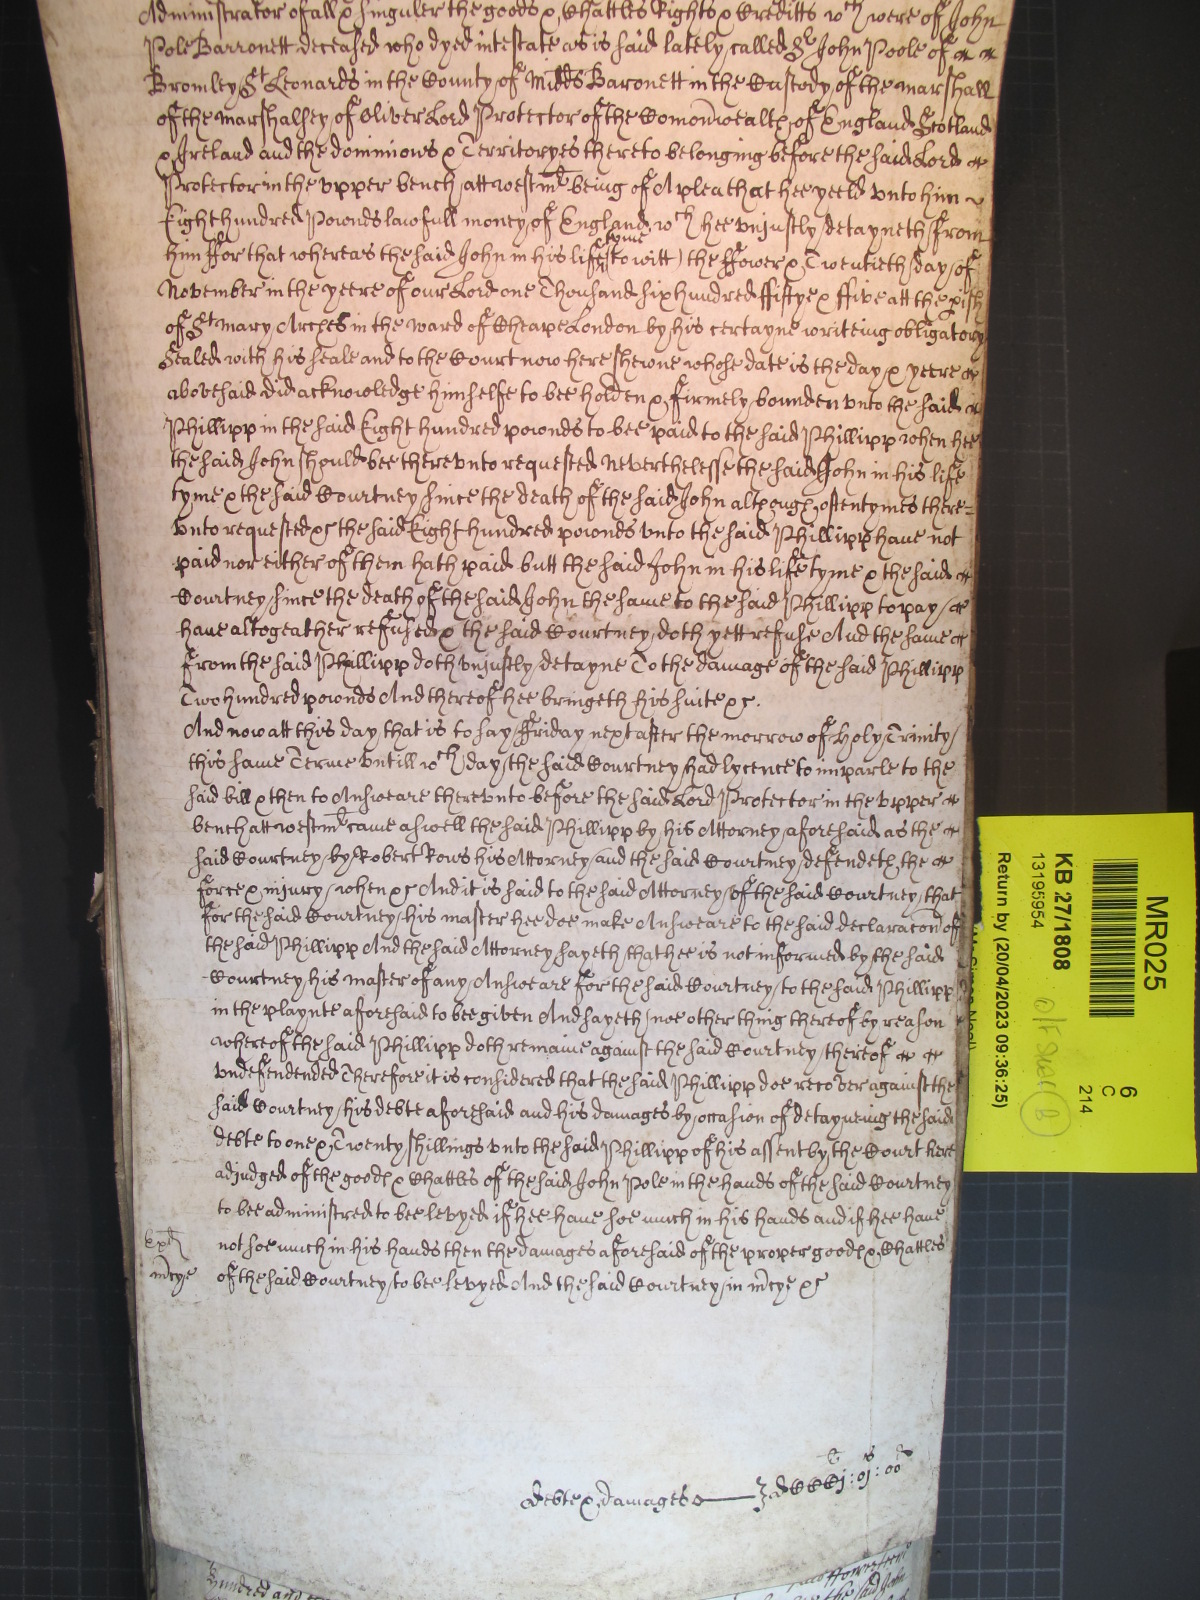 Administrator of all & singuler the goods & Chattles Rights & Creditts wch were of John
Pole Barronett deceased who dyed intestate as is said lately called Sr John Poole of
Bromley St Leonards in the County of Midds Baronett in the Custody of the marshall
of the marshalsey of Oliver Lord Protector of the Comonwealth of England Scotland
& Ireland and the dominions & Territoryes thereto belonging before the said Lord
Protector in the upper bench att westmr being of A plea that hee yeeld unto him
Eight hundred Pownds lawfull money of England wch hee unjustly detayneth from
him ffor that whereas the said John in his life tyme (to witt) the ffower & Twentieth day of
November in the yeere of our Lord one Thousand six hundred ffiftye & ffive att the pish
of St Mary Arches in the ward of Cheape London by his certayne writeing obligatory
Sealed with his seale and to the Court now here shewne whose date is the day & yeere
abovesaid did acknowledge himselfe to bee holden & firmely bounden unto the said
Phillipp in the said Eight hundred pownds to bee paid to the said Phillipp when hee
the said John should bee thereunto requested Neverthelesse the said John in his life
tyme & the said Courtney since the death of the said John although oftentymes there=
unto requested &c the said Eight hundred pownds unto the said Phillipp have not
paid nor either of them hath paid butt the said John in his life tyme & the said
Courtney since the death of the said John the same to the said Phillipp to pay
have altogeather refused & the said Courtney doth yett refuse And the same
from the said Phillipp doth unjustly detayne To the damage of the said Phillipp
Two hundred pownds And thereof hee bringeth his suite &c.
And now att this day that is to say ffriday next after the morrow of Holy Trinity
this same Terme untill wch day the said Courtney had lycence to imparle to the
said bill & then to Answeare thereunto before the said Lord Protector in the upper
bench att westmr came aswell the said Phillipp by his Attorney aforesaid as the
said Courtney by Robert Rows his Attorney and the said Courtney defendeth the
force & injury when &c And it is said to the said Attorney of the said Courtney that
for the said Courtney his master hee doe make Answeare to the said declaracon of
the said Phillipp And the said Attorney sayeth that hee is not informed by the said
Courtney his master of any Answeare for the said Courtney to the said Phillipp
in the playnte aforesaid to bee given And sayeth noe other thing thereof by reason
whereof the said Phillipp doth remaine against the said Courtney thereof
undefendended Therefore it is considered that the said Phillipp doe recover against the
said Courtney his debte aforesaid and his damages by occasion of detayneing the said
debte to one & Twenty shillings unto the said Phillipp of his assent by the Court here
adjudged of the goods & Chattles of the said John Pole in the hands of the said Courtney
to bee administred to bee levyed if hee have soe much in his hands and if hee have
not soe much in his hands then the damages aforesaid of the proper goods & Chattles
of the said Courtney to bee levyed And the said Courtney in mcye &c
mcye
debte & damages
MR025
KB 27/1808
13195954
Return by (20/04/2023 09:36:25)
6
C
214